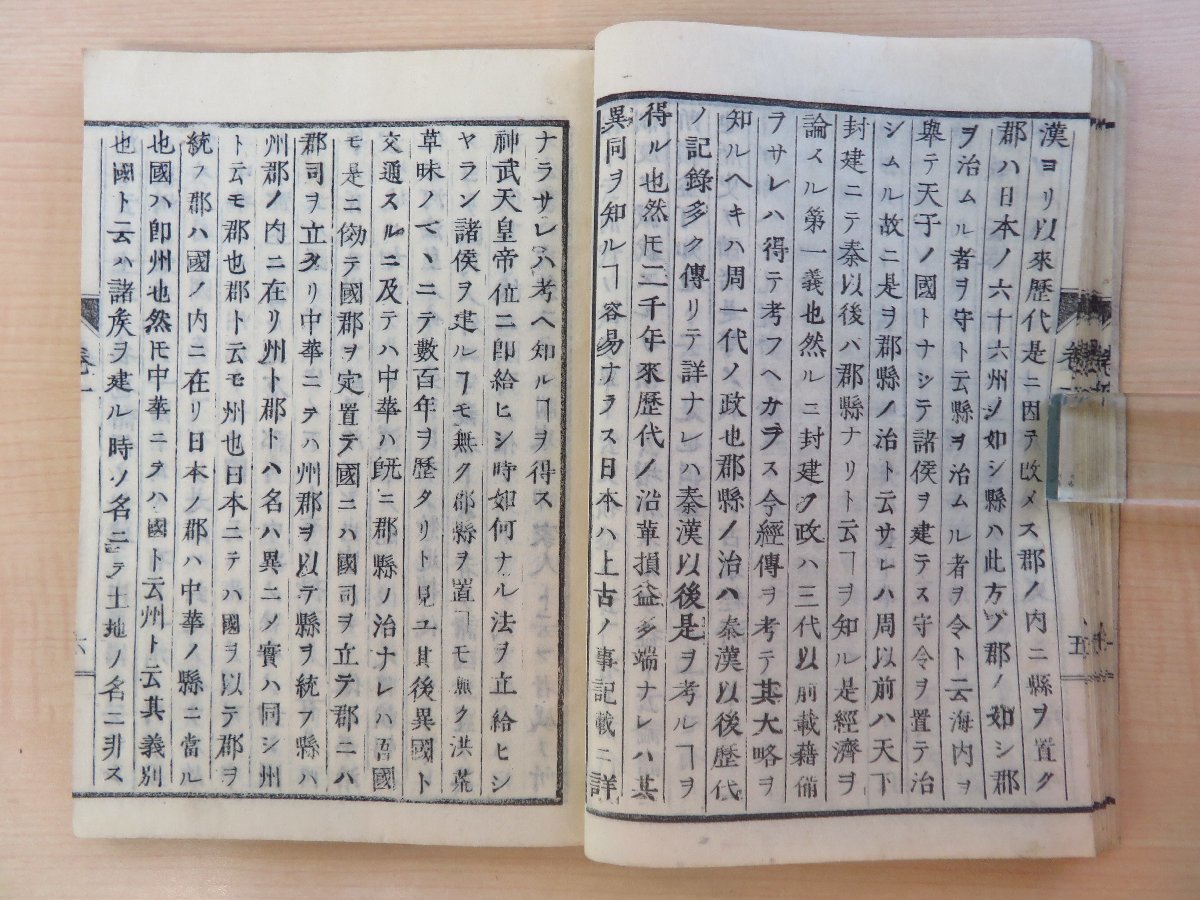 漢ヨリ以來歴代是ニ因テ改メス郡ノ内ニ縣ヲ置ク
郡ハ日本ノ六十六州ノ如シ縣ハ此方ノ郡ノ如シ郡
ヲ治ムル者ヲ守ト云縣ヲ治ムル者ヲ令ト云海内ヲ
擧テ天子ノ國トナシテ諸侯ヲ建テス守令ヲ置テ治
シムル故ニ是ヲ郡縣ノ治ト云サレハ周以前ハ天下
封建ニテ秦以後ハ郡縣ナリト云ヿヲ知ル是經濟ヲ
論スル第一義也然ルニ封建ノ政ハ三代以前載藉備
ヲサレハ得テ考フヘカラス今經傳ヲ考テ其大略ヲ
知ルヘキハ周一代ノ政也郡縣ノ治ハ秦漢以後歴代
ノ記録多ク傳リテ詳ナレハ秦漢以後是ヲ考ルヿヲ
得ル也然𪜈二千年來歴代ノ沿革損益多端ナレハ其
異同ヲ知ルヿ容易ナラス日本ハ上古ノ事記載ニ詳
五
ナラサレハ考ヘ知ルヿヲ得ス
神武天皇帝位ニ即給ヒシ時如何ナル法ヲ立給ヒシ
ヤラン諸侯ヲ建ルヿモ無ク郡縣ヲ置ヿモ無ク洪荒
草昧ノマヽニテ數百年ヲ歴タリト見ユ其後異國ト
交通スルニ及テハ中華ハ既ニ郡縣ノ治ナレハ吾國
モ是ニ傚テ國郡ヲ定置テ國ニハ國司ヲ立テ郡ニハ
郡司ヲ立タリ中華ニテハ州郡ヲ以テ縣ヲ統フ縣ハ
州郡ノ内ニ在リ州ト郡トハ名ハ異ニメ實ハ同シ州
ト云モ郡也郡ト云モ州也日本ニテハ國ヲ以テ郡ヲ
統フ郡ハ國ノ内ニ在リ日本ノ郡ハ中華ノ縣ニ當ル
也國ハ即州也然𪜈中華ニテハ國ト云州ト云其義別
也國ト云ハ諸矦ヲ建ル時ノ名ニテ土地ノ名ニ非ス